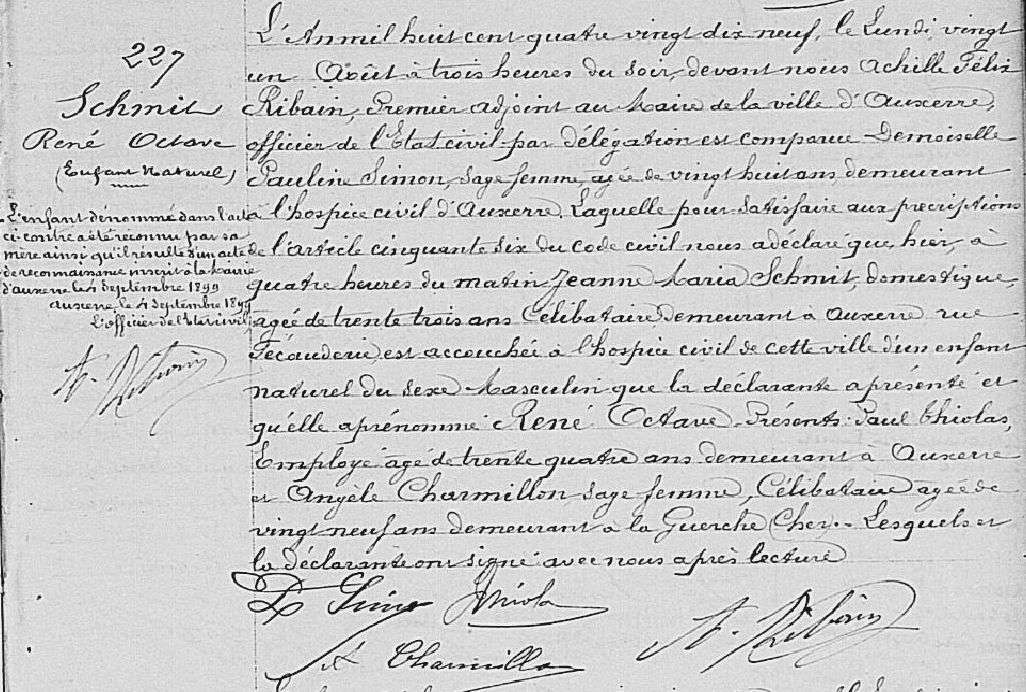 227
Schmit
René Octave
(Enfant Naturel)
L'enfant dénommé dans l'acte
ci contre a été reconnu par sa
mère ainsi qu'il résulte d'un acte
de reconnaissance inscrit à la Mairie
d'auxerre le 4 Septembre 1899
auxerre, le 4 Septembre 1899
L'officier de l'Etat civil
A. Ribain
L'An mil huit cent quatre vingt dix neuf, le Lundi vingt
un Août à trois heures du soir, devant nous Achille Félix
Ribain, Premier adjoint au Maire de la ville d'Auxerre,
officier de l'Etat civil par délégation est comparue Demoiselle
Pauline Simon, sage femme, agée de vingt huit ans, demeurant
à l'hospice civil d'Auxerre, Laquelle pour satisfaire aux prescriptions
de l'article cinquante six du code civil nous a déclaré que, hier, à
quatre heures du matin Jeanne Maria Schmit, domestique,
agée de trente trois ans Célibataire, demeurant à Auxerre rue
Fécauderie, est accouchée à l'hospice civil de cette ville d'un enfant
naturel du sexe Masculin que la déclarante a présenté et
qu'elle a prénommé René Octave. Présents: Paul Chiolas,
Employé agé de trente quatre ans demeurant à Auxerre
et Angèle Charmillon, sage femme, Célibataire agée de
vingt neuf ans demeurant à la Guerche (Cher). Lesquels et
la déclarante ont signé avec nous après lecture
P Simon
A Charmillon
A. Ribain